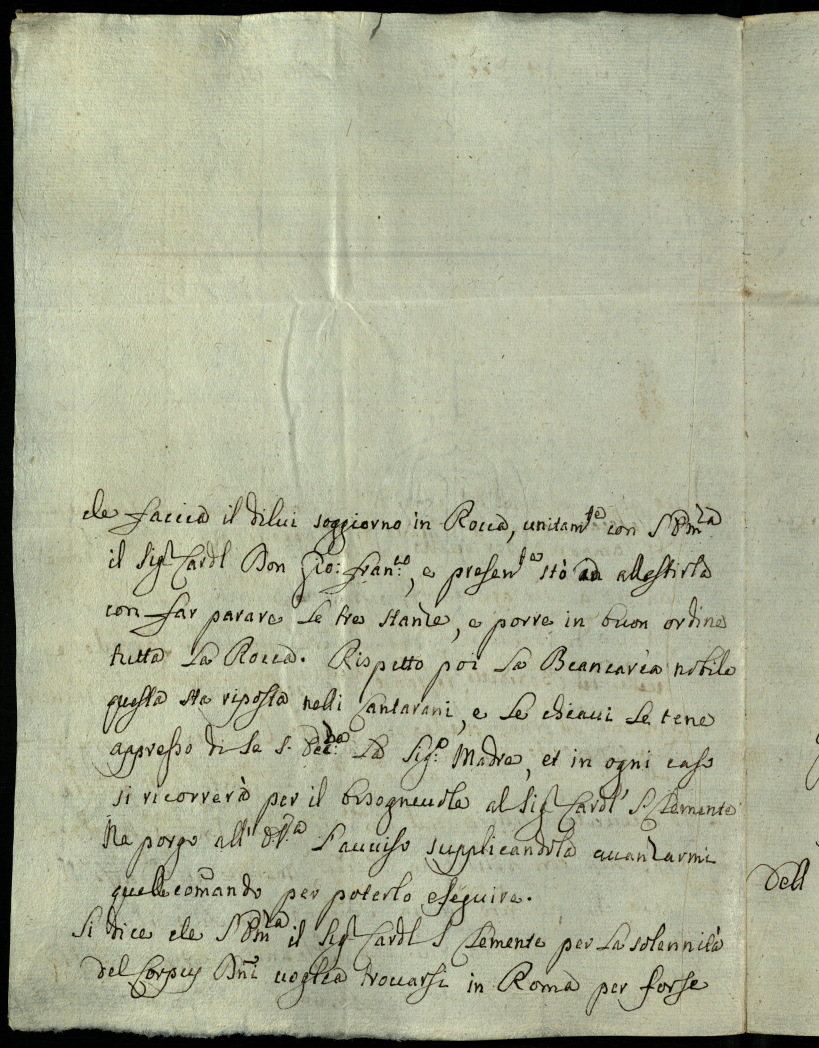 che faccia il dilui soggiorno in Rocca, unitamte con S. Emza
il Sigr Cardl Don Gio: Franco, e presente stò ad allestirla
con far parare le tre stanze, e porre in buon ordine
tutta la Rocca. Rispetto poi la Biancaria nobile
questa sta riposta nelli Cantarani, e le chiaui le tene
appresso di se S. Ecc:za la Sigra Madre, et in ogni caso
si ricorrerà per il bisogneuole al Sigr Cardl S. Clemente
Ne porgo all' E.V.ra l'auuiso supplicandola auanzarmi
quelle comando per poterlo eseguire.
Si dice che S. Emza il Sigr Cardl S. Clemente per la solennità
del Corpus Dni uoglia trouarsi in Roma per forse
Dell